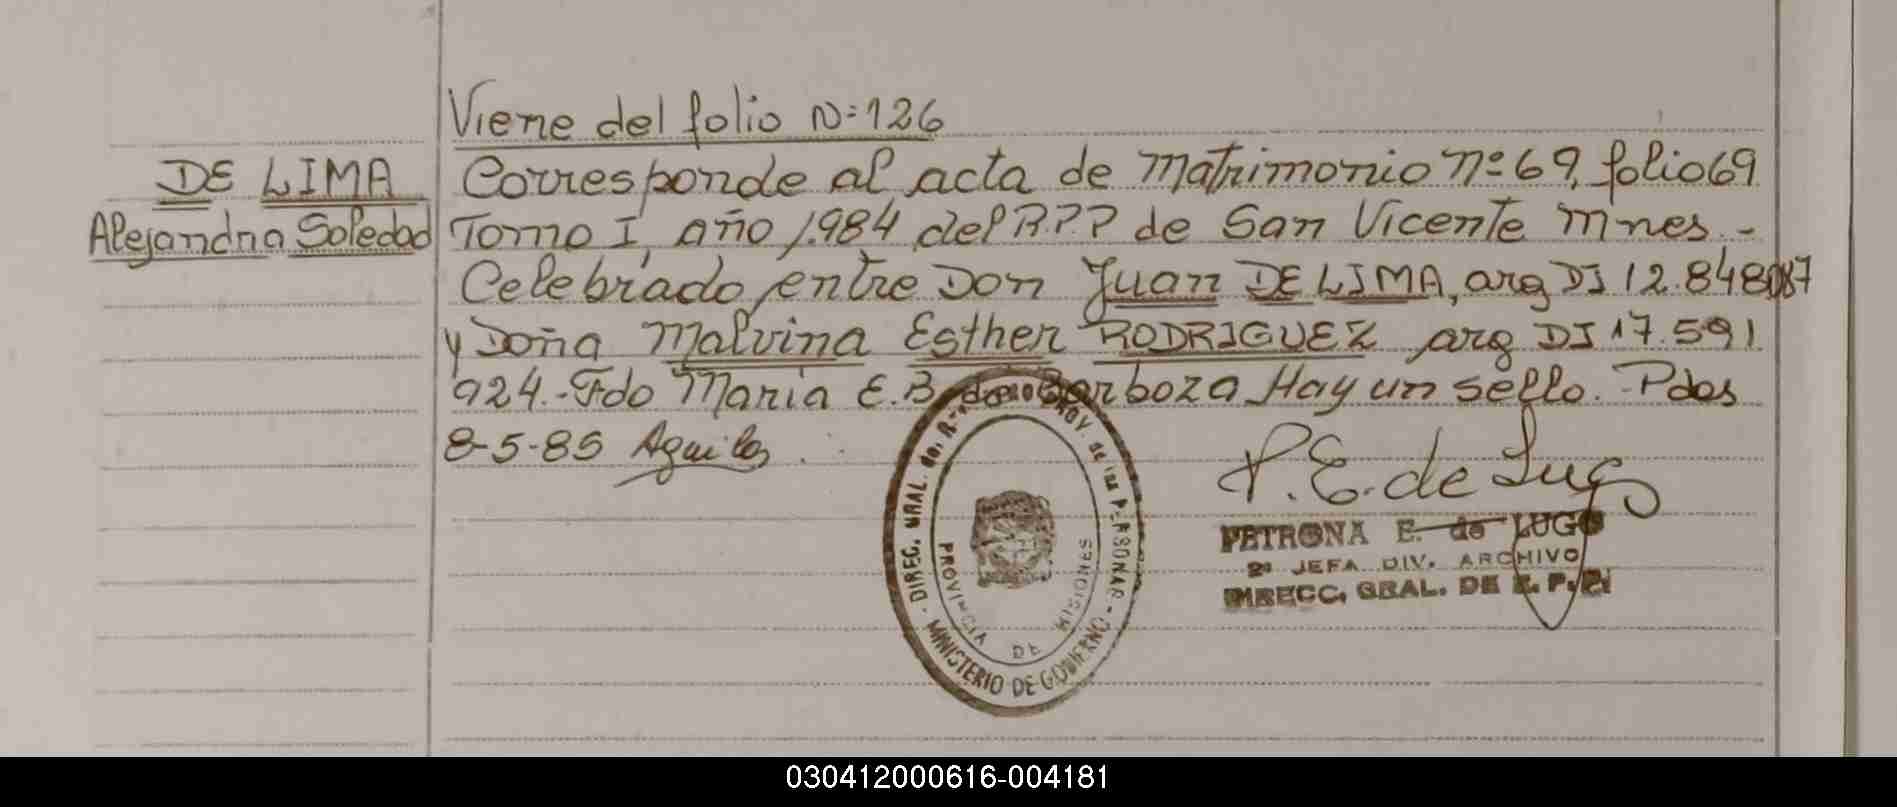 Viene del folio Nº 126
DE LIMA
Alejandra Soledad
Corresponde al acta de Matrimonio nº 69, folio 69
Tomo I, año 1.984 del R.P.P de San Vicente Mnes.-
Celebrado, entre Don Juan DE LIMA, arg DI 12.848087
y Doña Malvina Esther RODRIGUEZ arg DI 17.591
924.-Fdo Maria E.B. de Barboza Hay un sello.-Pdas
8-5-85
P.E. de Lugo
PETRONA E. de LUGO
2ª JEFA DIV. ARCHIVO
DIRECC. GRAL. DE R. P. P.
DIREC. GRAL. del REG. PROV. de las PERSONAS
MINISTERIO DE GOBIERNO
PROVINCIA DE MISIONES
030412000616-004181